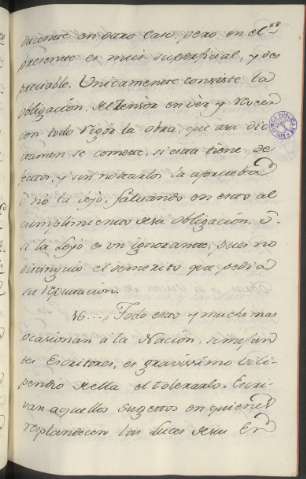 en otro caso, pero en el
presente es mui superficial, y des
preciable. Unicamente consiste la
obligacion del Censor en ver, y
con todo rigor la obra, que a su dic
tamen se comete, si esta tiene de
fectos, y sin notarlos la aprueba
ò no la lejò, faltando en esto al
cumplimiento de su obligacion, ò
si la lejò es un ignorante, pues no
distinguiò el demerito que pedia
su
16... Todo esto, y mucho mas
ocasionan à la Nacion, semejan
tes Escritores, es gravissimo vili
pendio de ella el tolerarlo.
van aquellos Sugettos en quienes
resplandecen las luces de su Er